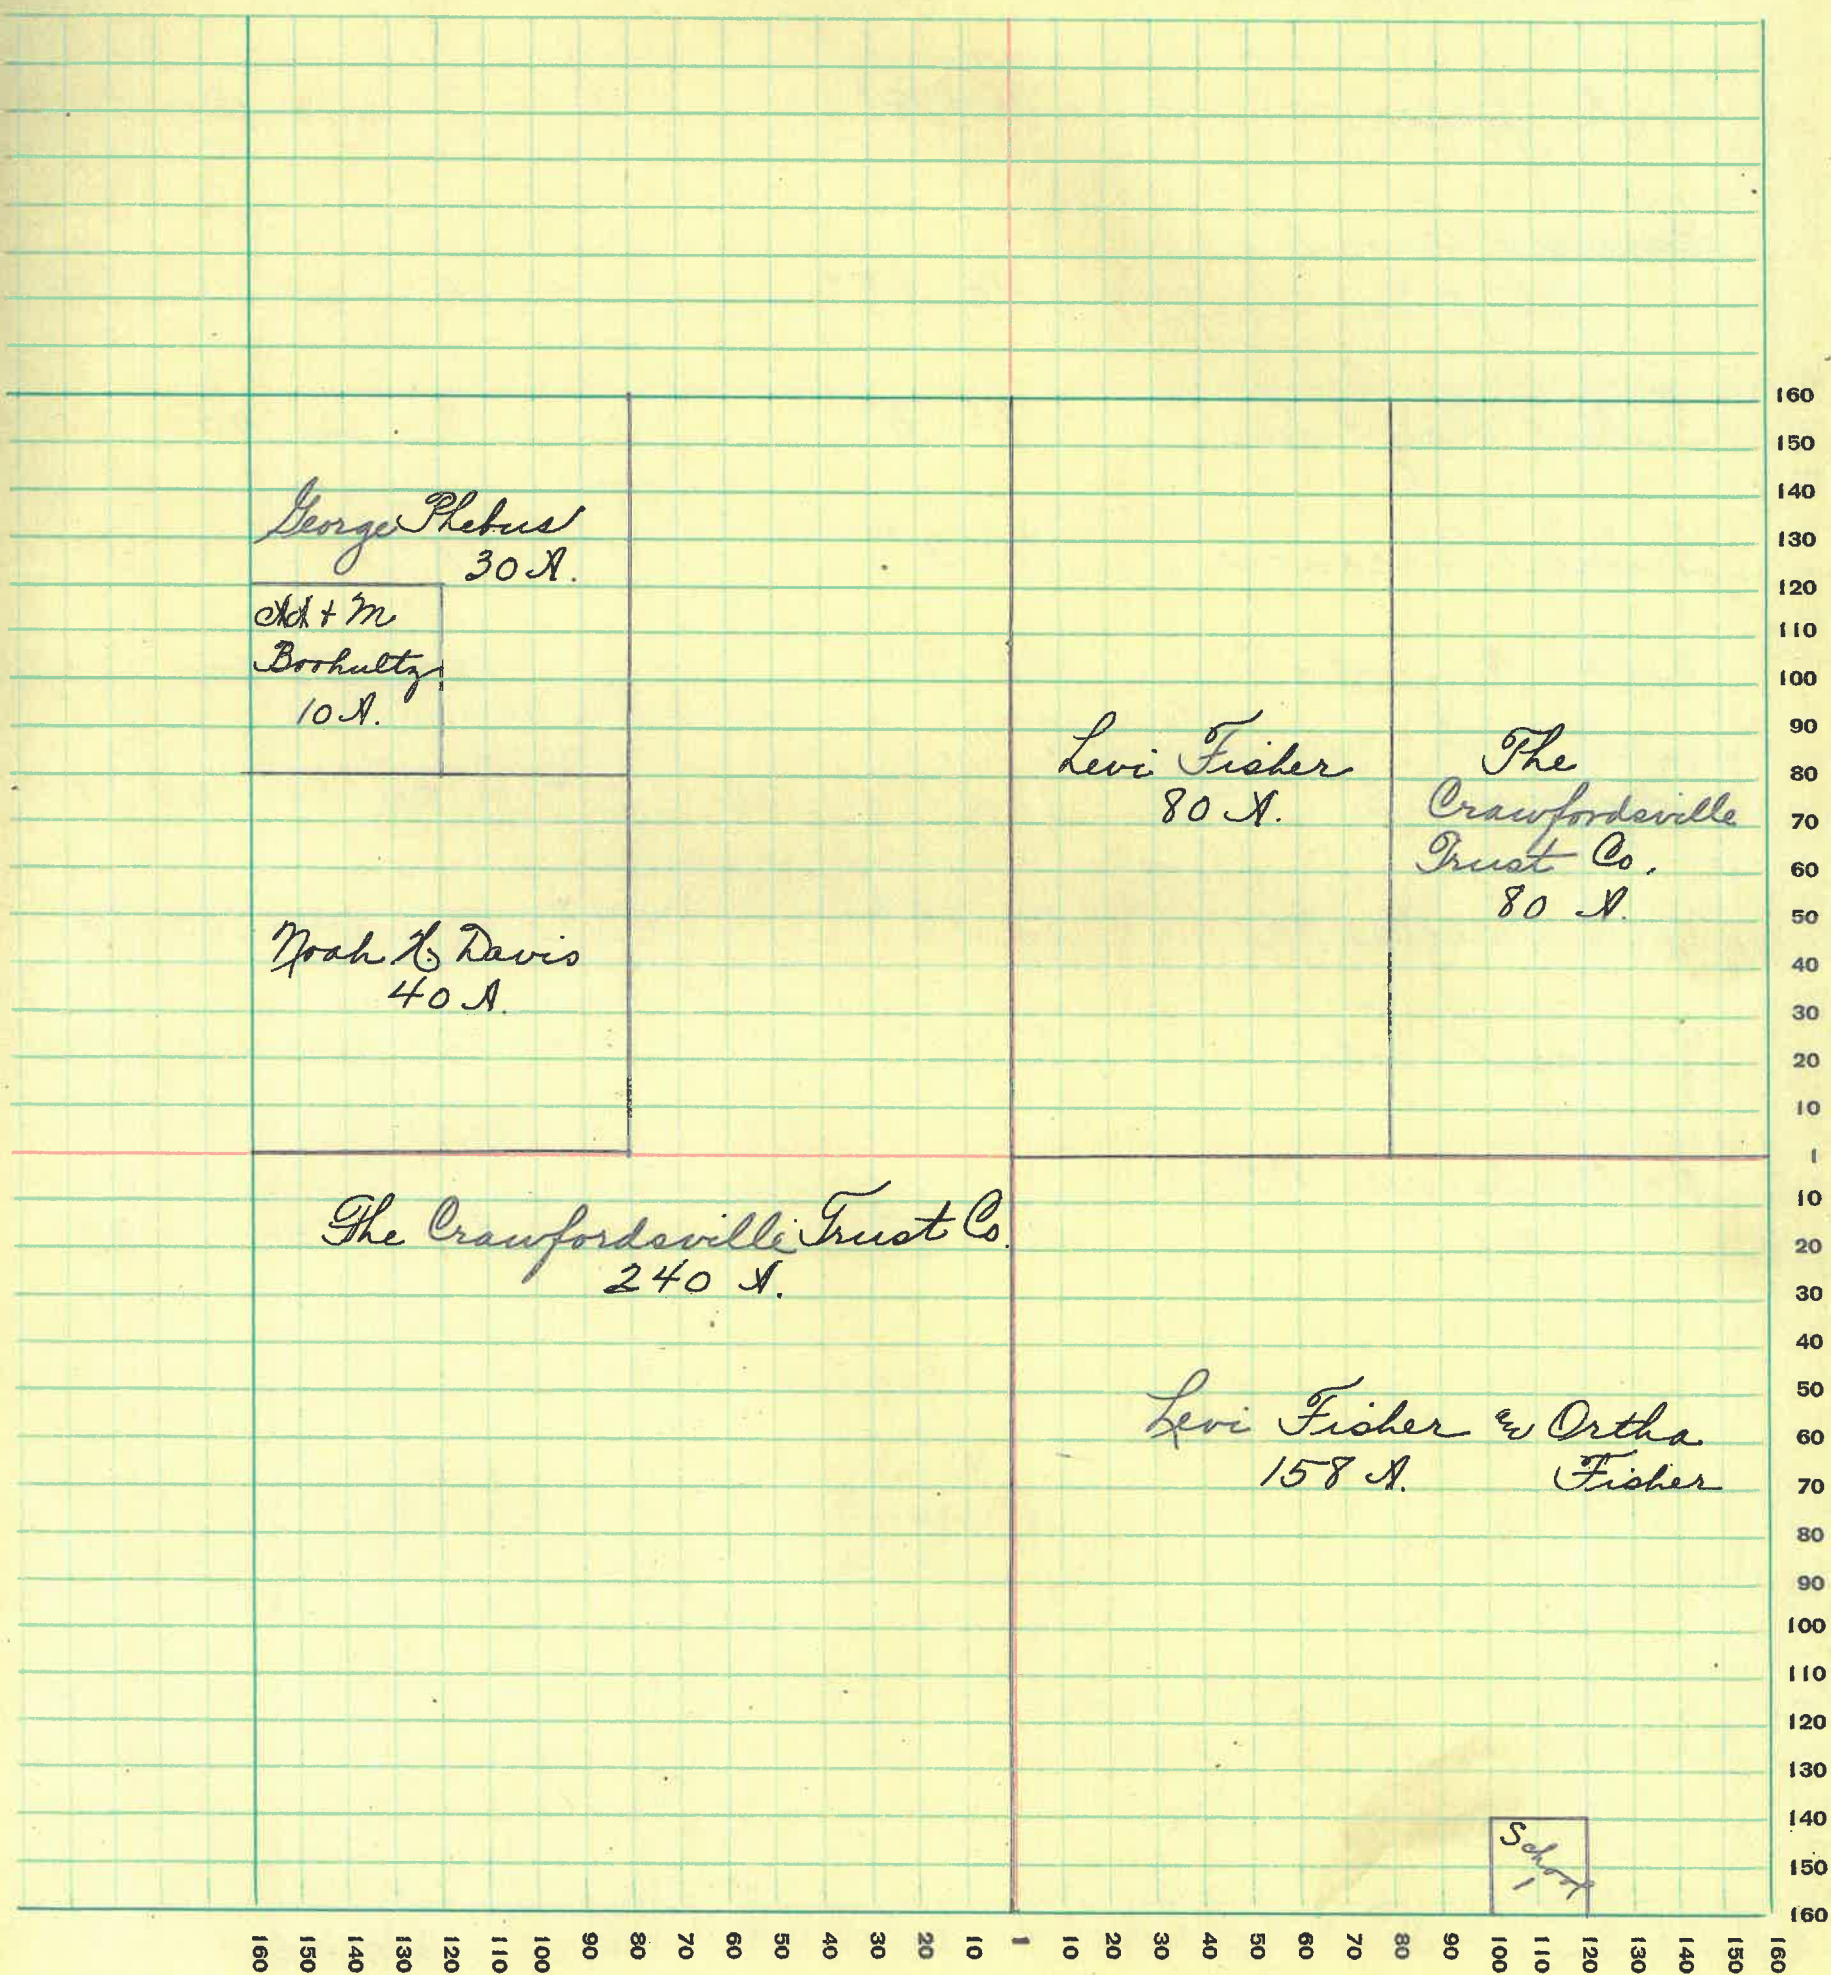 George Phebus
30 A.
& M
Boohultz
10 A.
Noah H. Davis
40 A.
Levi Fisher
80 A.
The
Crawfordsville
Trust Co.
80 A.
The Crawfordsville Trust Co.
240 A.
Levi Fisher & Ortha
158 A. Fisher
School
1
160
150
140
130
120
110
100
90
80
70
60
50
40
30
20
10
1
10
20
30
40
50
60
70
80
90
100
110
120
130
140
150
160
160 150 140 130 120 110 100 90 80 70 60 50 40 30 20 10 1 10 20 30 40 50 60 70 80 90 100 110 120 130 140 150 160